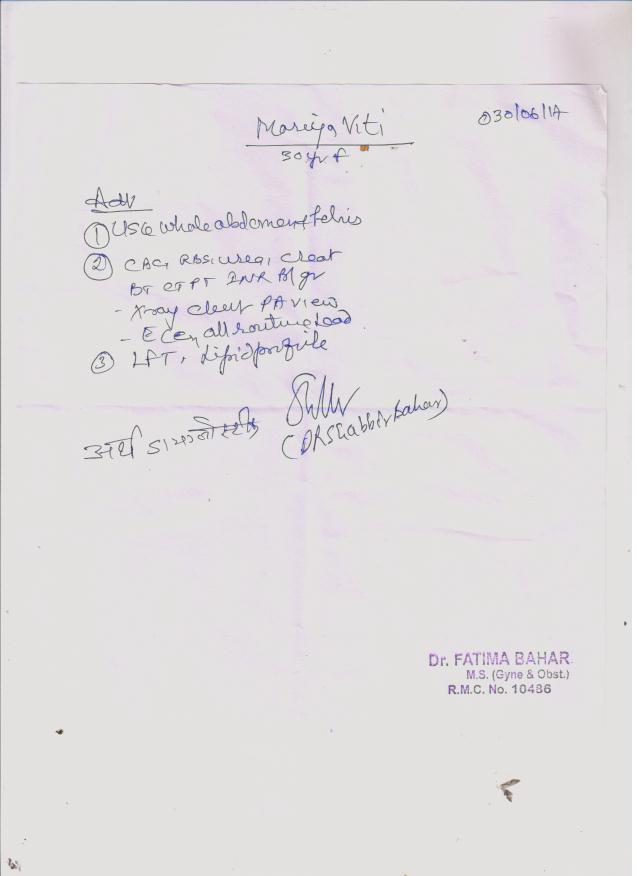 30/06/17
Mariya Viti
30 yr f
Adv
① USG whole abdomen & Pelvis
② CBC, RBS, urea, creat
BT CT PT INR Bl gr
- X-ray chest PA view
- ECG, all routine Lead
③ LFT, Lipid profile
(DR Shabbir Bahar)
अर्थ डायग्नोस्टीक
Dr. FATIMA BAHAR
M.S. (Gyne & Obst.)
R.M.C. No. 10486